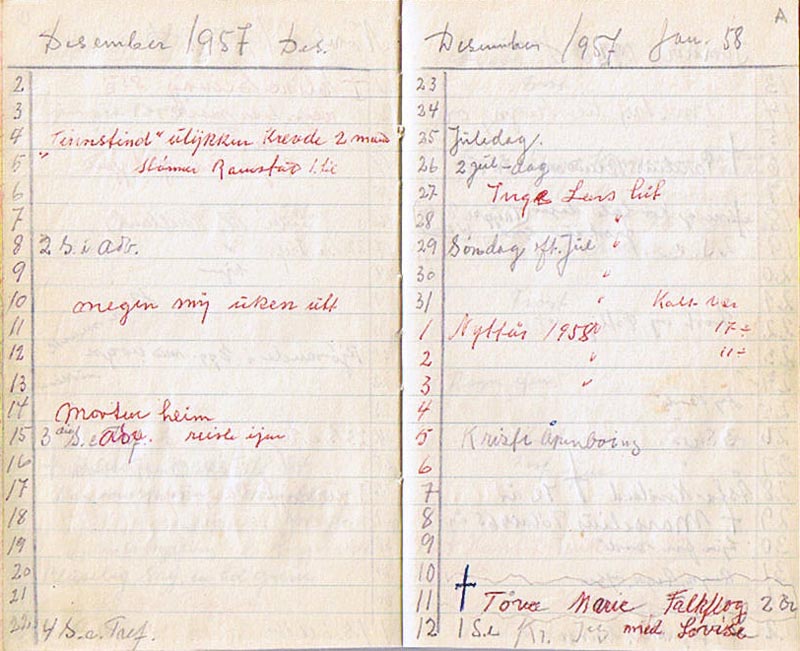 Desember 1957 Des.
2
3
4 "Tinnsfind" ulykken Krevde 2 mand
5 " Stömer Ramstad
6
7
8 2 S. i Adv.
9
10 megen snij uken utt
11
12
13
14 Morten heim
15 3 S. e Adv. reiste ijen
16
17
18
19
20
21
22 4 S. e.
Desember 1957 Jan. 58
A
23
24
25 Juledag.
26 2 jul-dag
27 Inge Lars hit
28 "
29 Søndag eft. Jul "
30 "
31 " Kalt vær
1 Nyttår 1958 " 17÷
2 " 11÷
3 "
4
5 Kristi Åpenbaring
6
7
8
9
10
11 † Tove Marie Falkflog 2 Br
12 1 S.e Kr. med Lovise